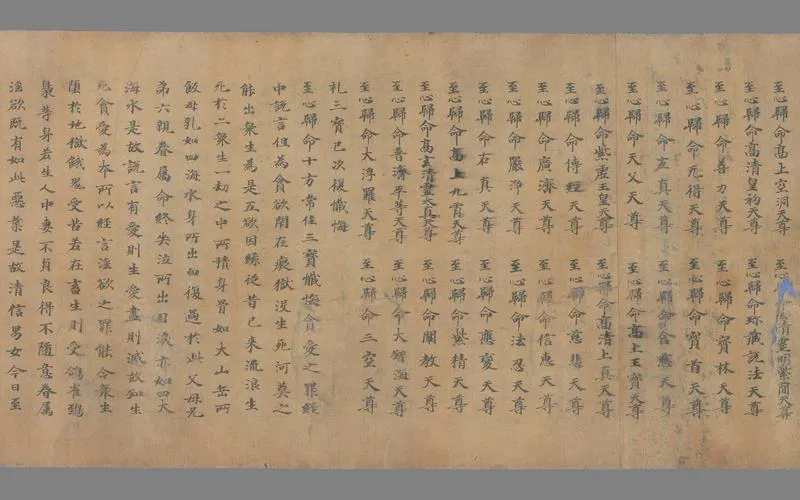 至心歸命高上空洞天尊 至心 青靈明紫簡天尊
至心歸命高清皇初天尊 至心歸命珎藏說法天尊
至心歸命善力天尊 至心歸命寶林天尊
至心歸命元得天尊 至心歸命寶首天尊
至心歸命左真天尊 至心歸命含慈天尊
至心歸命天父天尊 至心歸命高上玉寶天尊
至心歸命紫虛玉皇天尊 至心歸命高清上真天尊
至心歸命傳經天尊 至心歸命慈悲天尊
至心歸命廣濟天尊 至心歸命信惠天尊
至心歸命嚴淨天尊 至心歸命法忍天尊
至心歸命右真天尊 至心歸命應變天尊
至心歸命高上九霄天尊 至心歸命紫精天尊
至心歸命高玄清靈太真天尊 至心歸命開教天尊
至心歸命普濟平等天尊 至心歸命大智海天尊
至心歸命大浮羅天尊 至心歸命三空天尊
礼三寶已次復懺悔
至心歸命十方常住三寶懺悔貪愛之罪經
中說言但為貪欲閇在癡獄沒生死河莫之
能出衆生為是五欲因緣從昔已來流浪生
死於二衆生一劫之中所積身骨如大山岳所
飲母乳如四海水身所出血復過於此父母兄
弟六親眷屬命終哭泣所出目淚亦如四大
海水是故說言有愛則生愛盡則滅故知生
死貪愛為本所以經言淫欲之罪能令衆生
墮於地獄餓鬼受苦若在畜生則受鴿雀鵄
梟等身若生人中妻不貞良得不隨意眷屬
淫欲既有如此惡業是故清信男女今日至